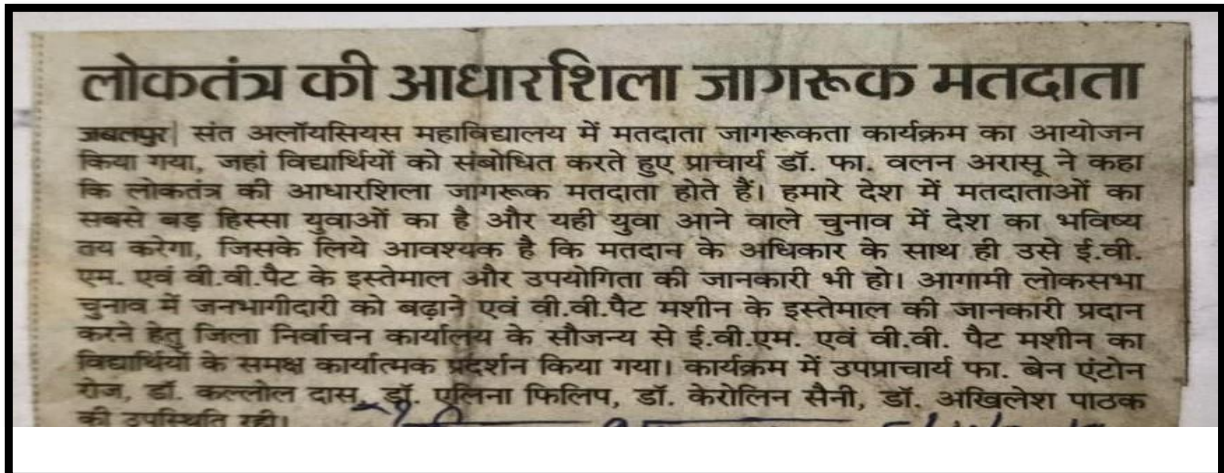 लोकतंत्र की आधारशिला जागरूक मतदाता
जबलपुर| संत अलॉयसियस महाविद्यालय में मतदाता जागरूकता कार्यक्रम का आयोजन
किया गया, जहां विद्यार्थियों को संबोधित करते हुए प्राचार्य डॉ. फा. वलन अरासू ने कहा
कि लोकतंत्र की आधारशिला जागरूक मतदाता होते हैं। हमारे देश में मतदाताओं का
सबसे बड़ हिस्सा युवाओं का है और यही युवा आने वाले चुनाव में देश का भविष्य
तय करेगा, जिसके लिये आवश्यक है कि मतदान के अधिकार के साथ ही उसे ई.वी.
एम. एवं वी.वी.पैट के इस्तेमाल और उपयोगिता की जानकारी भी हो। आगामी लोकसभा
चुनाव में जनभागीदारी को बढ़ाने एवं वी.वी.पैट मशीन के इस्तेमाल की जानकारी प्रदान
करने हेतु जिला निर्वाचन कार्यालय के सौजन्य से ई.वी.एम. एवं वी.वी. पैट मशीन का
विद्यार्थियों के समक्ष कार्यात्मक प्रदर्शन किया गया। कार्यक्रम में उपप्राचार्य फा. बेन एंटोन
रोज, डॉ. कल्लोल दास, डॉ. एलिना फिलिप, डॉ. केरोलिन सैनी, डॉ. अखिलेश पाठक
की उपस्थिति रही।